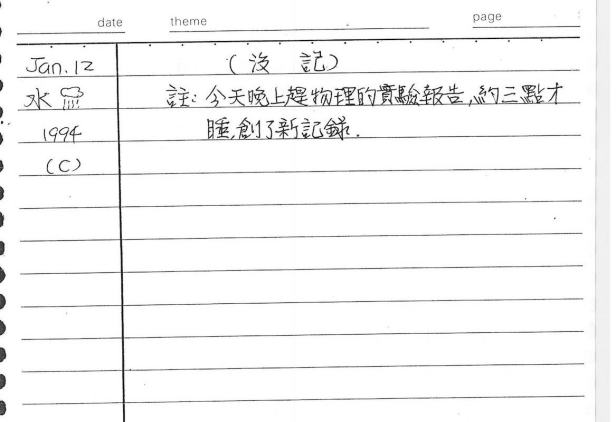 date theme page
Jan. 12 (沒 記)
水 註: 今天晚上趕物理的實驗報告,約三點才
1994 睡,創了新記錄.
(C)